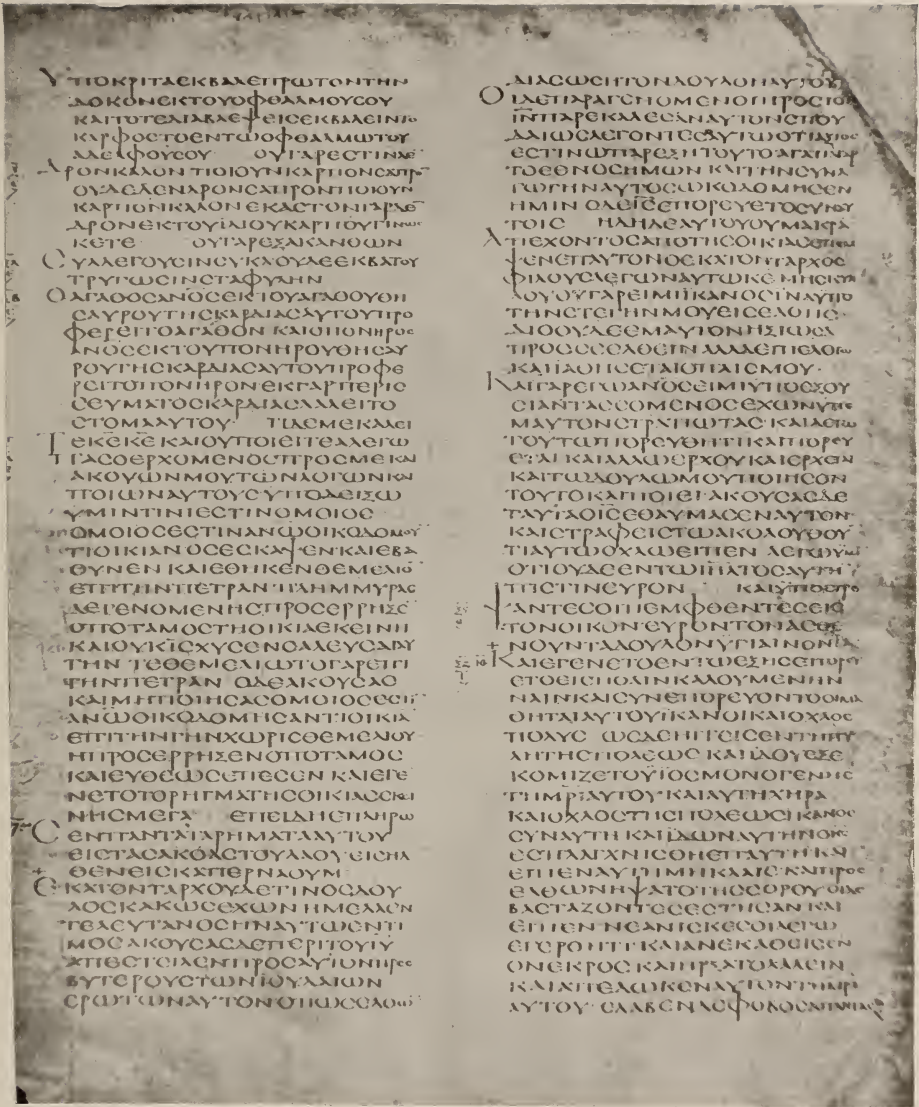 ΥΠΟΚΡΙΤΑΕΚΒΑΛΕΠΡΩΤΟΝΤΗΝ
ΔΟΚΟΝΕΚΤΟΥΟΦΘΑΛΜΟΥϹΟΥ
ΚΑΙΤΟΤΕΔΙΑΒΛΕΨΕΙϹΕΚΒΑΛΕΙΝΤΟ
ΚΑΡΦΟϹΤΟΕΝΤΩΟΦΘΑΛΜΩΤΟΥ
ΑΔΕΛΦΟΥϹΟΥ ΟΥΓΑΡΕϹΤΙΝΔΕ
ΔΡΟΝΚΑΛΟΝΠΟΙΟΥΝΚΑΡΠΟΝϹΑΠΡΟ
ΟΥΔΕΔΕΝΔΡΟΝϹΑΠΡΟΝΠΟΙΟΥΝ
ΚΑΡΠΟΝΚΑΛΟΝΕΚΑϹΤΟΝΓΑΡΔΕ
ΔΡΟΝΕΚΤΟΥΙΔΙΟΥΚΑΡΠΟΥΓΙΝΩϹ
ΚΕΤΕ ΟΥΓΑΡΕΞΑΚΑΝΘΩΝ
ϹΥΛΛΕΓΟΥϹΙΝϹΥΚΑΟΥΔΕΕΚΒΑΤΟΥ
ΤΡΥΓΩϹΙΝϹΤΑΦΥΛΗΝ
ΟΑΓΑΘΟϹΑΝΟϹΕΚΤΟΥΑΓΑΘΟΥΘΗ
ϹΑΥΡΟΥΤΗϹΚΑΡΔΙΑϹΑΥΤΟΥΠΡΟ
ΦΕΡΕΙΤΟΑΓΑΘΟΝ ΚΑΙΟΠΟΝΗΡΟϹ
ΑΝΟϹΕΚΤΟΥΠΟΝΗΡΟΥΘΗϹΑΥ
ΡΟΥΤΗϹΚΑΡΔΙΑϹΑΥΤΟΥΠΡΟΦΕ
ΡΕΙΤΟΠΟΝΗΡΟΝΕΚΓΑΡΠΕΡΙϹ
ϹΕΥΜΑΤΟϹΚΑΡΔΙΑϹΛΑΛΕΙΤΟ
ϹΤΟΜΑΑΥΤΟΥ· ΤΙΔΕΜΕΚΑΛΕΙ
ΤΕΚΕΚΕΚΑΙΟΥΠΟΙΕΙΤΕΑΛΕΓΩ
ΠΑϹΟΕΡΧΟΜΕΝΟϹΠΡΟϹΜΕΚΑΙ
ΑΚΟΥΩΝΜΟΥΤΩΝΛΟΓΩΝΚΑΙ
ΠΟΙΩΝΑΥΤΟΥϹΥΠΟΔΕΙΞΩ
ΥΜΙΝΤΙΝΙΕϹΤΙΝΟΜΟΙΟϹ
ΟΜΟΙΟϹΕϹΤΙΝΑΝΩΟΙΚΟΔΟΜΟΥ
ΤΙΟΙΚΙΑΝΟϹΕϹΚΑΨΕΝΚΑΙΕΒΑ
ΘΥΝΕΝΚΑΙΕΘΗΚΕΝΘΕΜΕΛΙΟ
ΕΠΙΤΗΝΠΕΤΡΑΝ·ΠΛΗΜΜΥΡΑϹ
ΔΕΓΕΝΟΜΕΝΗϹΠΡΟϹΕΡΡΗΞΕ
ΟΠΟΤΑΜΟϹΤΗΟΙΚΙΑΕΚΕΙΝΗ
ΚΑΙΟΥΚΙϹΧΥϹΕΝϹΑΛΕΥϹΑΙΑΥ
ΤΗΝ ΤΕΘΕΜΕΛΙΩΤΟΓΑΡΕΠΙ
ΤΗΝΠΕΤΡΑΝ ΟΔΕΑΚΟΥϹΑϹ
ΚΑΙΜΗΠΟΙΗϹΑϹΟΜΟΙΟϹΕϹΤΙ
ΑΝΩΟΙΚΟΔΟΜΗϹΑΝΤΙΟΙΚΙΑ
ΕΠΙΤΗΝΓΗΝΧΩΡΙϹΘΕΜΕΛΙΟΥ
ΗΠΡΟϹΕΡΡΗΞΕΝΟΠΟΤΑΜΟϹ
ΚΑΙΕΥΘΕΩϹΕΠΕϹΕΝ ΚΑΙΕΓΕ
ΝΕΤΟΤΟΡΗΓΜΑΤΗϹΟΙΚΙΑϹΕΚΕΙ
ΝΗϹΜΕΓΑ ΕΠΕΙΔΗΕΠΛΗΡΩ
ϹΕΝΠΑΝΤΑΤΑΡΗΜΑΤΑΑΥΤΟΥ
ΕΙϹΤΑϹΑΚΟΑϹΤΟΥΛΑΟΥΕΙϹΗΛ
ΘΕΝΕΙϹΚΑΠΕΡΝΑΟΥΜ
ΕΚΑΤΟΝΤΑΡΧΟΥΔΕΤΙΝΟϹΔΟΥ
ΛΟϹΚΑΚΩϹΕΧΩΝΗΜΕΛΛΕΝ
ΤΕΛΕΥΤΑΝΟϹΗΝΑΥΤΩΕΝΤΙ
ΜΟϹΑΚΟΥϹΑϹΔΕΠΕΡΙΤΟΥΙΥ
ΑΠΕϹΤΕΙΛΕΝΠΡΟϹΑΥΤΟΝΠΡΕϹ
ΒΥΤΕΡΟΥϹΤΩΝΙΟΥΔΑΙΩΝ
ΕΡΩΤΩΝΑΥΤΟΝΟΠΩϹΕΛΘΩ
ΔΙΑϹΩϹΗΤΟΝΔΟΥΛΟΝΑΥΤΟΥ
ΟΙΔΕΠΑΡΑΓΕΝΟΜΕΝΟΙΠΡΟϹΤΟ
ΙΝΠΑΡΕΚΑΛΕϹΑΝΑΥΤΟΝϹΠΟΥ
ΔΑΙΩϹΛΕΓΟΝΤΕϹΑΥΤΩΟΤΙΑΞΙΟϹ
ΕϹΤΙΝΩΠΑΡΕΞΗΤΟΥΤΟΑΓΑΠΑΓΑΡ
ΤΟΕΘΝΟϹΗΜΩΝ ΚΑΙΤΗΝϹΥΝΑ
ΓΩΓΗΝΑΥΤΟϹΩΚΟΔΟΜΗϹΕΝ
ΗΜΙΝ ΟΔΕΙϹΕΠΟΡΕΥΕΤΟϹΥΝΑΥ
ΤΟΙϹ ΗΔΗΔΕΑΥΤΟΥΟΥΜΑΚΡΑ
ΑΠΕΧΟΝΤΟϹΑΠΟΤΗϹΟΙΚΙΑϹΕΠΕΜ
ΨΕΝΕΠΑΥΤΟΝΟΕΚΑΤΟΝΤΑΡΧΟϹ
ΦΙΛΟΥϹΛΕΓΩΝΑΥΤΩΚΕΜΗϹΚΥΛ
ΛΟΥΟΥΓΑΡΕΙΜΙΙΚΑΝΟϹΙΝΑΥΠΟ
ΤΗΝϹΤΕΓΗΝΜΟΥΕΙϹΕΛΘΗϹ·
ΔΙΟΟΥΔΕΕΜΑΥΤΟΝΗΞΙΩϹΑ
ΠΡΟϹϹΕΕΛΘΕΙΝΑΛΛΑΕΙΠΕΛΟΓΩ
ΚΑΙΙΑΘΗϹΕΤΑΙΟΠΑΙϹΜΟΥ·
ΚΑΙΓΑΡΕΓΩΑΝΟϹΕΙΜΙΥΠΟΕΞΟΥ
ϹΙΑΝΤΑϹϹΟΜΕΝΟϹΕΧΩΝΥΠΕ
ΜΑΥΤΟΝϹΤΡΑΤΙΩΤΑϹ ΚΑΙΛΕΓΩ
ΤΟΥΤΩΠΟΡΕΥΘΗΤΙΚΑΙΠΟΡΕΥ
ΕΤΑΙΚΑΙΑΛΛΩΕΡΧΟΥΚΑΙΕΡΧΕΤΑΙ
ΚΑΙΤΩΔΟΥΛΩΜΟΥΠΟΙΗϹΟΝ
ΤΟΥΤΟΚΑΙΠΟΙΕΙ·ΑΚΟΥϹΑϹΔΕ
ΤΑΥΤΑΟΙϹΕΘΑΥΜΑϹΕΝΑΥΤΟΝ
ΚΑΙϹΤΡΑΦΕΙϹΤΩΑΚΟΛΟΥΘΟΥ
ΤΙΑΥΤΩΟΧΛΩΕΙΠΕΝ ΛΕΓΩΥΜΙ
ΟΤΙΟΥΔΕΕΝΤΩΙΗΛΤΟϹΑΥΤΗ
ΠΙϹΤΙΝΕΥΡΟΝ ΚΑΙΥΠΟϹΤΡΕ
ΨΑΝΤΕϹΟΙΠΕΜΦΘΕΝΤΕϹΕΙϹ
ΤΟΝΟΙΚΟΝΕΥΡΟΝΤΟΝΑϹΘΕ
ΝΟΥΝΤΑΔΟΥΛΟΝΥΓΙΑΙΝΟΝΤΑ
ΚΑΙΕΓΕΝΕΤΟΕΝΤΩΕΞΗϹΕΠΟΡΕΥ
ΕΤΟΕΙϹΠΟΛΙΝΚΑΛΟΥΜΕΝΗΝ
ΝΑΙΝΚΑΙϹΥΝΕΠΟΡΕΥΟΝΤΟΟΙΜΑ
ΘΗΤΑΙΑΥΤΟΥΙΚΑΝΟΙΚΑΙΟΧΛΟϹ
ΠΟΛΥϹ ΩϹΔΕΗΓΓΙϹΕΝΤΗΠΥ
ΛΗΤΗϹΠΟΛΕΩϹ ΚΑΙΙΔΟΥΕΞΕ
ΚΟΜΙΖΕΤΟΥΙΟϹΜΟΝΟΓΕΝΗϹ
ΤΗΜΡΙΑΥΤΟΥΚΑΙΑΥΤΗΧΗΡΑ
ΚΑΙΟΧΛΟϹΤΗϹΠΟΛΕΩϹΙΚΑΝΟϹ
ϹΥΝΑΥΤΗ ΚΑΙΙΔΩΝΑΥΤΗΝΟΚϹ
ΕϹΠΛΑΓΧΝΙϹΘΗΕΠΑΥΤΗΚΑΙ
ΕΙΠΕΝΑΥΤΗΜΗΚΛΑΙΕΚΑΙΠΡΟϹ
ΕΛΘΩΝΗΨΑΤΟΤΗϹϹΟΡΟΥΟΙΔΕ
ΒΑϹΤΑΖΟΝΤΕϹΕϹΤΗϹΑΝ ΚΑΙ
ΕΙΠΕΝ ΝΕΑΝΙϹΚΕϹΟΙΛΕΓΩ
ΕΓΕΡΘΗΤΙ ΚΑΙΑΝΕΚΑΘΕΙϹΕΝ
ΟΝΕΚΡΟϹ ΚΑΙΗΡΞΑΤΟΛΑΛΕΙΝ
ΚΑΙΑΠΕΔΩΚΕΝΑΥΤΟΝΤΗΜΡΙ
ΑΥΤΟΥ·ΕΛΑΒΕΝΔΕΦΟΒΟϹΑΠΑΝΤΑϹ